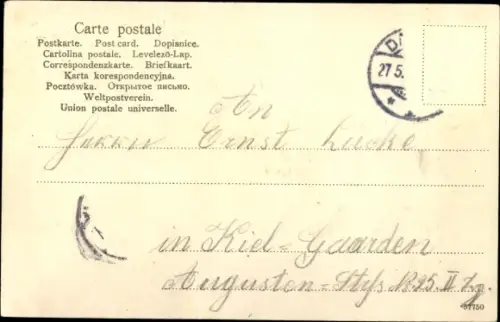 Carte postale
Postkarte. Post card. Dopisnice.
Cartolina postale. Levelező-Lap.
Correspondenzkarte. Briefkaart.
Karta korespondencyjna.
Pocztówka. Открытое письмо.
Weltpostverein.
Union postale universelle.
27.5.
An
Herrn Ernst
in Kiel=Gaarden
Augusten=Stß N 35 II
57750